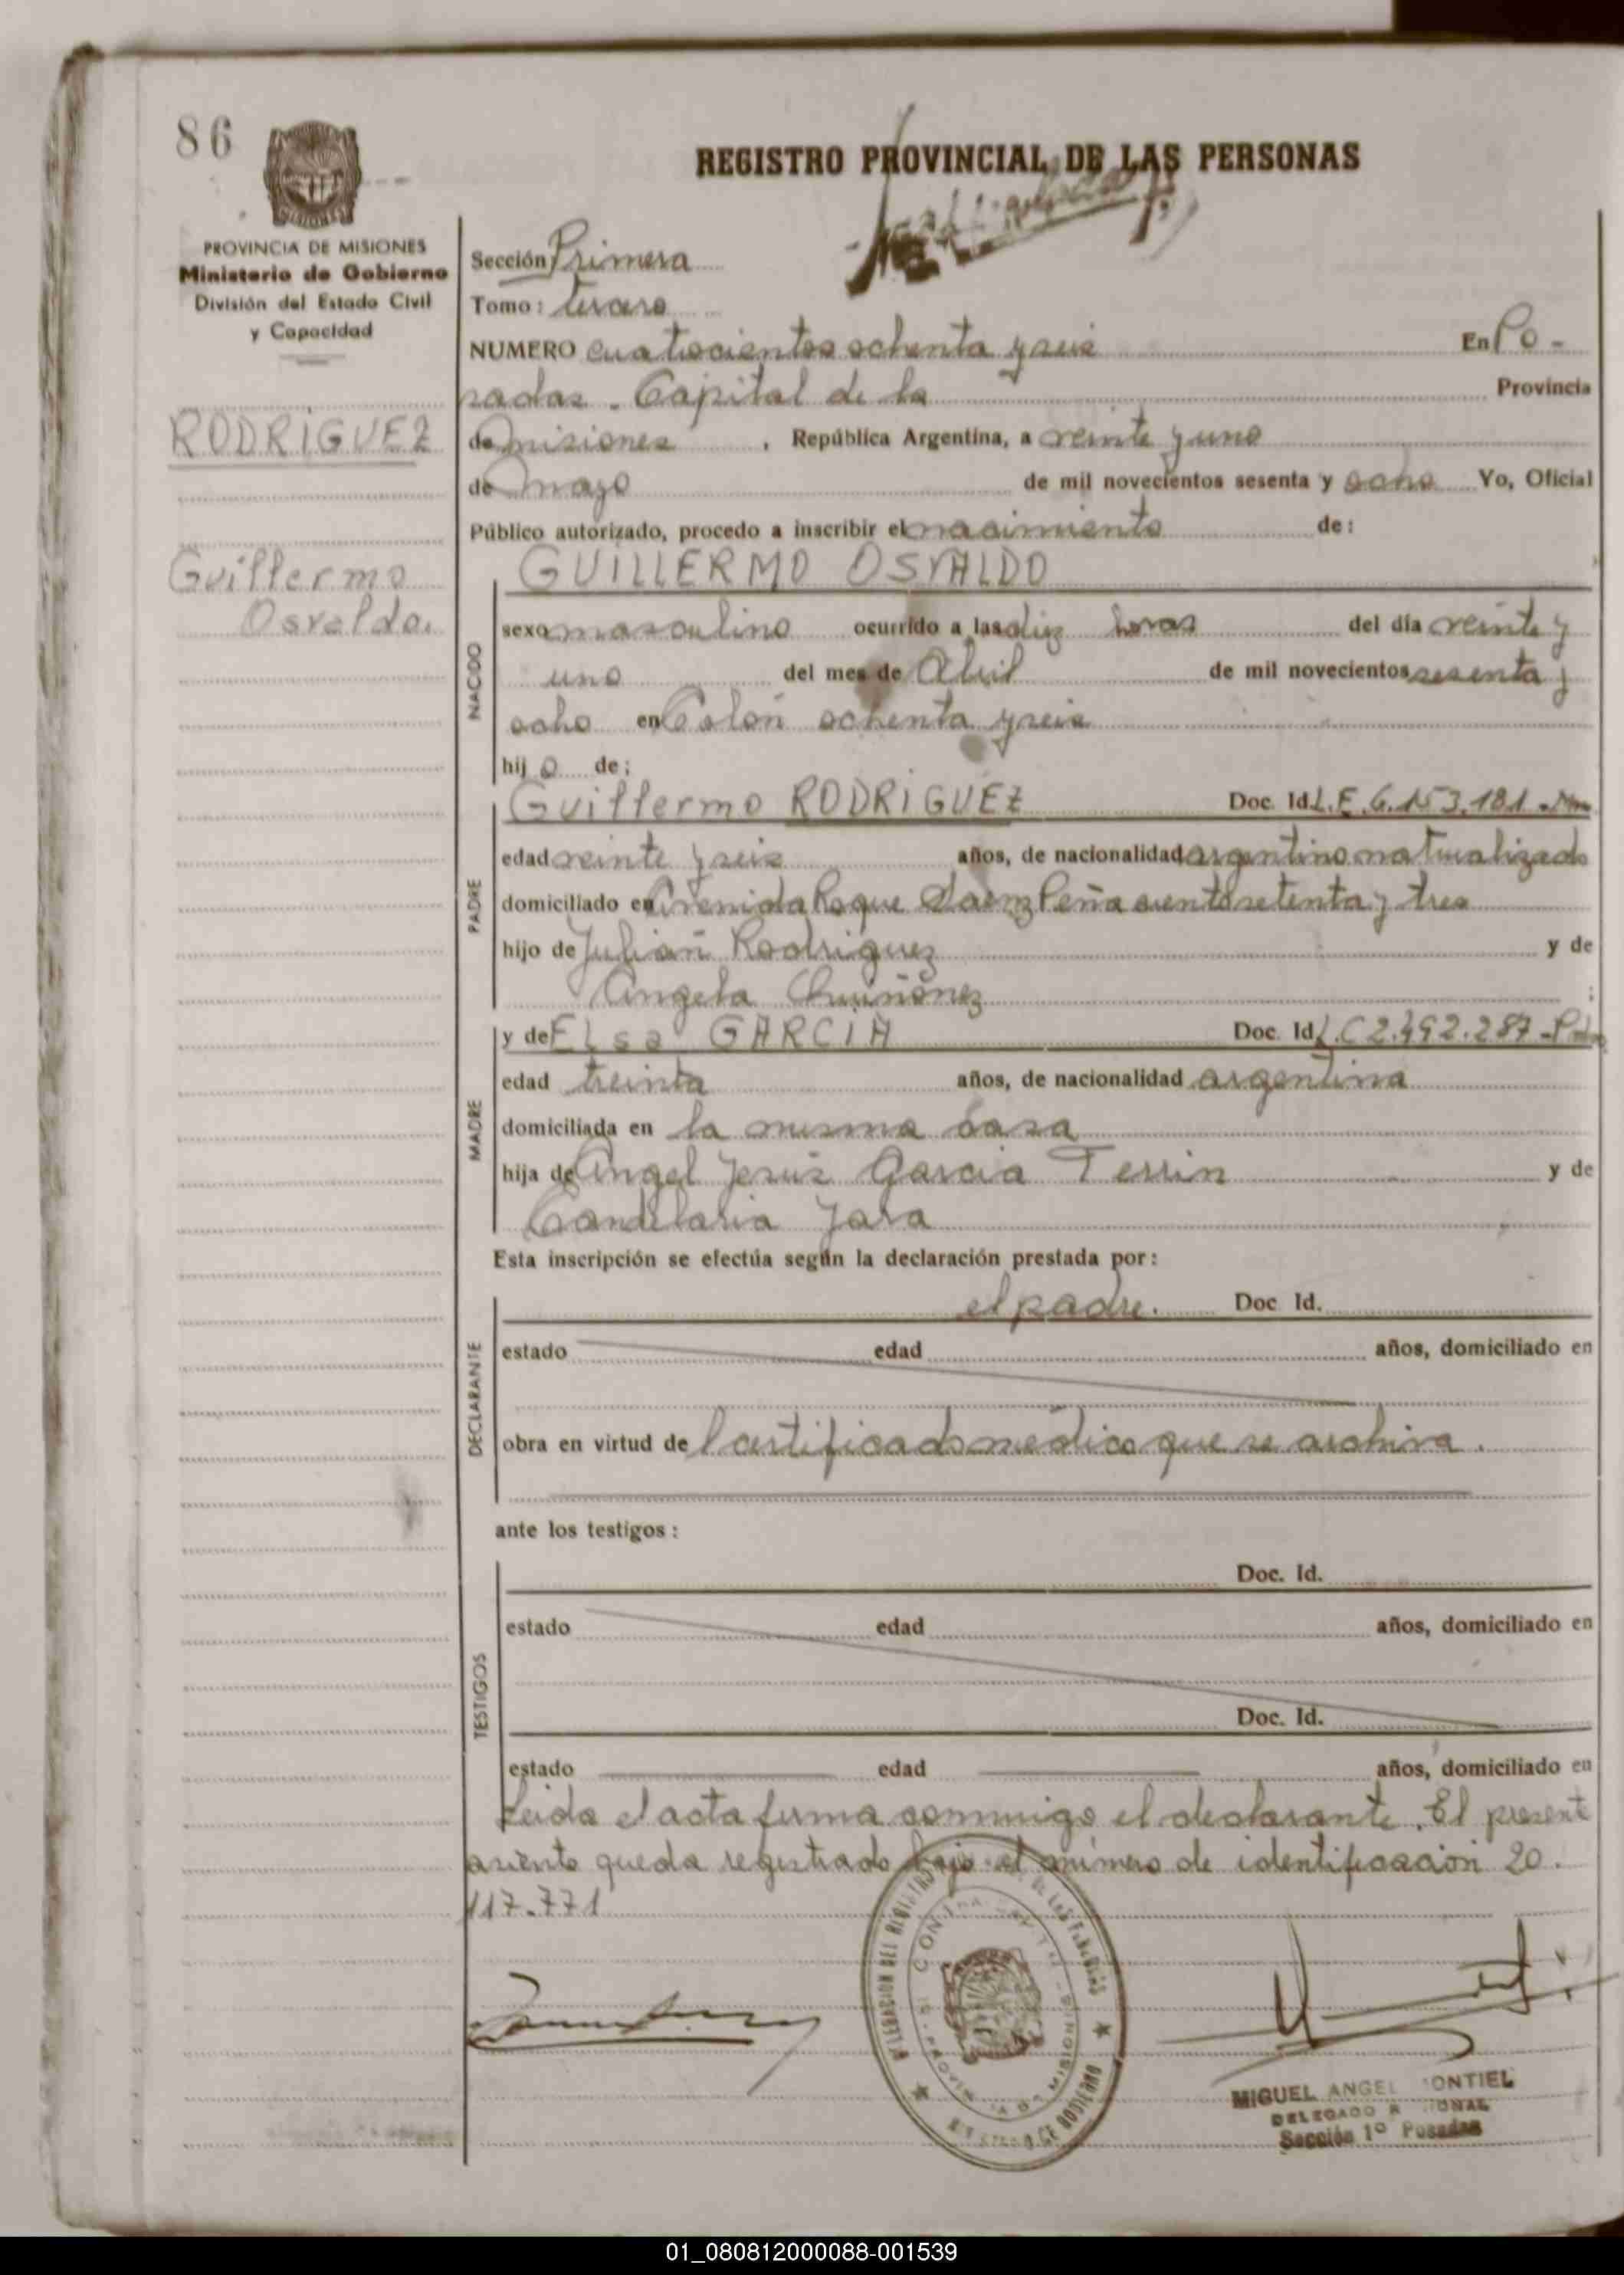 86
REGISTRO PROVINCIAL DE LAS PERSONAS
PROVINCIA DE MISIONES
Ministerio de Gobierno
División del Estado Civil
y Capacidad
RODRIGUEZ
Guillermo
Osvaldo.
Sección Primera
Tomo: tercero
NUMERO cuatrocientos ochenta y seis En Po-
sadas. Capital de la Provincia
de Misiones, República Argentina, a veinte y uno
de Mayo de mil novecientos sesenta y ocho Yo, Oficial
Público autorizado, procedo a inscribir el nacimiento de:
GUILLERMO OSVALDO
NACIDO
sexo masculino ocurrido a las diez horas del día veinte y
uno del mes de Abril de mil novecientos sesenta y
ocho en Colón ochenta y seis
hijo de:
PADRE
Guillermo RODRIGUEZ Doc. Id. L.E. 6.153.181
edad veinte y seis años, de nacionalidad argentino naturalizado
domiciliado en Avenida Roque Saenz Peña ciento setenta y tres
hijo de Julián Rodriguez y de
Angela Quiñónez
MADRE
y de Elsa GARCIA Doc. Id. L.C 2.492.287
edad treinta años, de nacionalidad argentina
domiciliada en la misma casa
hija de Angel Jesús Garcia Terrin y de
Candelaria Jara
Esta inscripción se efectúa según la declaración prestada por:
DECLARANTE
el padre. Doc. Id.
estado edad años, domiciliado en
obra en virtud de l certificado médico que se archiva.
ante los testigos:
TESTIGOS
Doc. Id.
estado edad años, domiciliado en
Doc. Id.
estado edad años, domiciliado en
Leida el acta firma conmigo el declarante. El present
asiento queda registrado bajo el número de identificación 20.
117.771
MIGUEL ANGEL MONTIEL
DELEGADO
Sección 1º Posadas
01_080812000088-001539